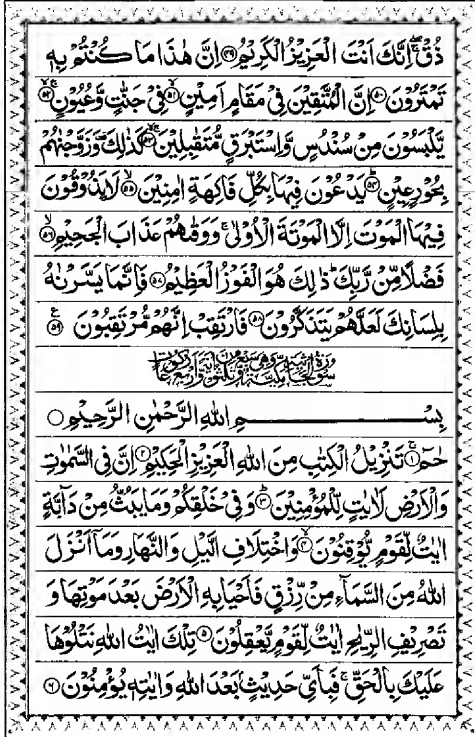 ذُقْ ۚ اِنَّكَ اَنْتَ الْعَزِيْزُ الْكَرِيْمُ ﴿۴۹﴾ اِنَّ هٰذَا مَا كُنْتُمْ بِهٖ
تَمْتَرُوْنَ ﴿۵۰﴾ اِنَّ الْمُتَّقِيْنَ فِيْ مَقَامٍ اَمِيْنٍ ﴿۵۱﴾ فِيْ جَنّٰتٍ وَّعُيُوْنٍ ﴿۵۲﴾
يَّلْبَسُوْنَ مِنْ سُنْدُسٍ وَّاِسْتَبْرَقٍ مُّتَقٰبِلِيْنَ ﴿۵۳﴾ كَذٰلِكَ ۟ وَزَوَّجْنٰهُمْ
بِحُوْرٍ عِيْنٍ ﴿۵۴﴾ يَدْعُوْنَ فِيْهَا بِكُلِّ فَاكِهَةٍ اٰمِنِيْنَ ﴿۵۵﴾ لَا يَذُوْقُوْنَ
فِيْهَا الْمَوْتَ اِلَّا الْمَوْتَةَ الْاُوْلٰى ۚ وَوَقٰىهُمْ عَذَابَ الْجَحِيْمِ ﴿۵۶﴾
فَضْلًا مِّنْ رَّبِّكَ ؕ ذٰلِكَ هُوَ الْفَوْزُ الْعَظِيْمُ ﴿۵۷﴾ فَاِنَّمَا يَسَّرْنٰهُ
بِلِسَانِكَ لَعَلَّهُمْ يَتَذَكَّرُوْنَ ﴿۵۸﴾ فَارْتَقِبْ اِنَّهُمْ مُّرْتَقِبُوْنَ ﴿۵۹﴾
سُوْرَةُ الْجَاثِيَةِ مَكِّيَّةٌ وَّهِيَ سَبْعٌ وَّثَلٰثُوْنَ اٰيَةً وَّاَرْبَعُ رُكُوْعَاتٍ
بِسْمِ اللّٰهِ الرَّحْمٰنِ الرَّحِيْمِ ○
حٰمٓ ﴿۱﴾ تَنْزِيْلُ الْكِتٰبِ مِنَ اللّٰهِ الْعَزِيْزِ الْحَكِيْمِ ﴿۲﴾ اِنَّ فِي السَّمٰوٰتِ
وَالْاَرْضِ لَاٰيٰتٍ لِّلْمُؤْمِنِيْنَ ﴿۳﴾ وَفِيْ خَلْقِكُمْ وَمَا يَبُثُّ مِنْ دَآبَّةٍ
اٰيٰتٌ لِّقَوْمٍ يُّوْقِنُوْنَ ﴿۴﴾ وَاخْتِلَافِ الَّيْلِ وَالنَّهَارِ وَمَآ اَنْزَلَ
اللّٰهُ مِنَ السَّمَآءِ مِنْ رِّزْقٍ فَاَحْيَا بِهِ الْاَرْضَ بَعْدَ مَوْتِهَا وَ
تَصْرِيْفِ الرِّيٰحِ اٰيٰتٌ لِّقَوْمٍ يَّعْقِلُوْنَ ﴿۵﴾ تِلْكَ اٰيٰتُ اللّٰهِ نَتْلُوْهَا
عَلَيْكَ بِالْحَقِّ ۚ فَبِاَيِّ حَدِيْثٍۭ بَعْدَ اللّٰهِ وَاٰيٰتِهٖ يُؤْمِنُوْنَ ﴿۶﴾